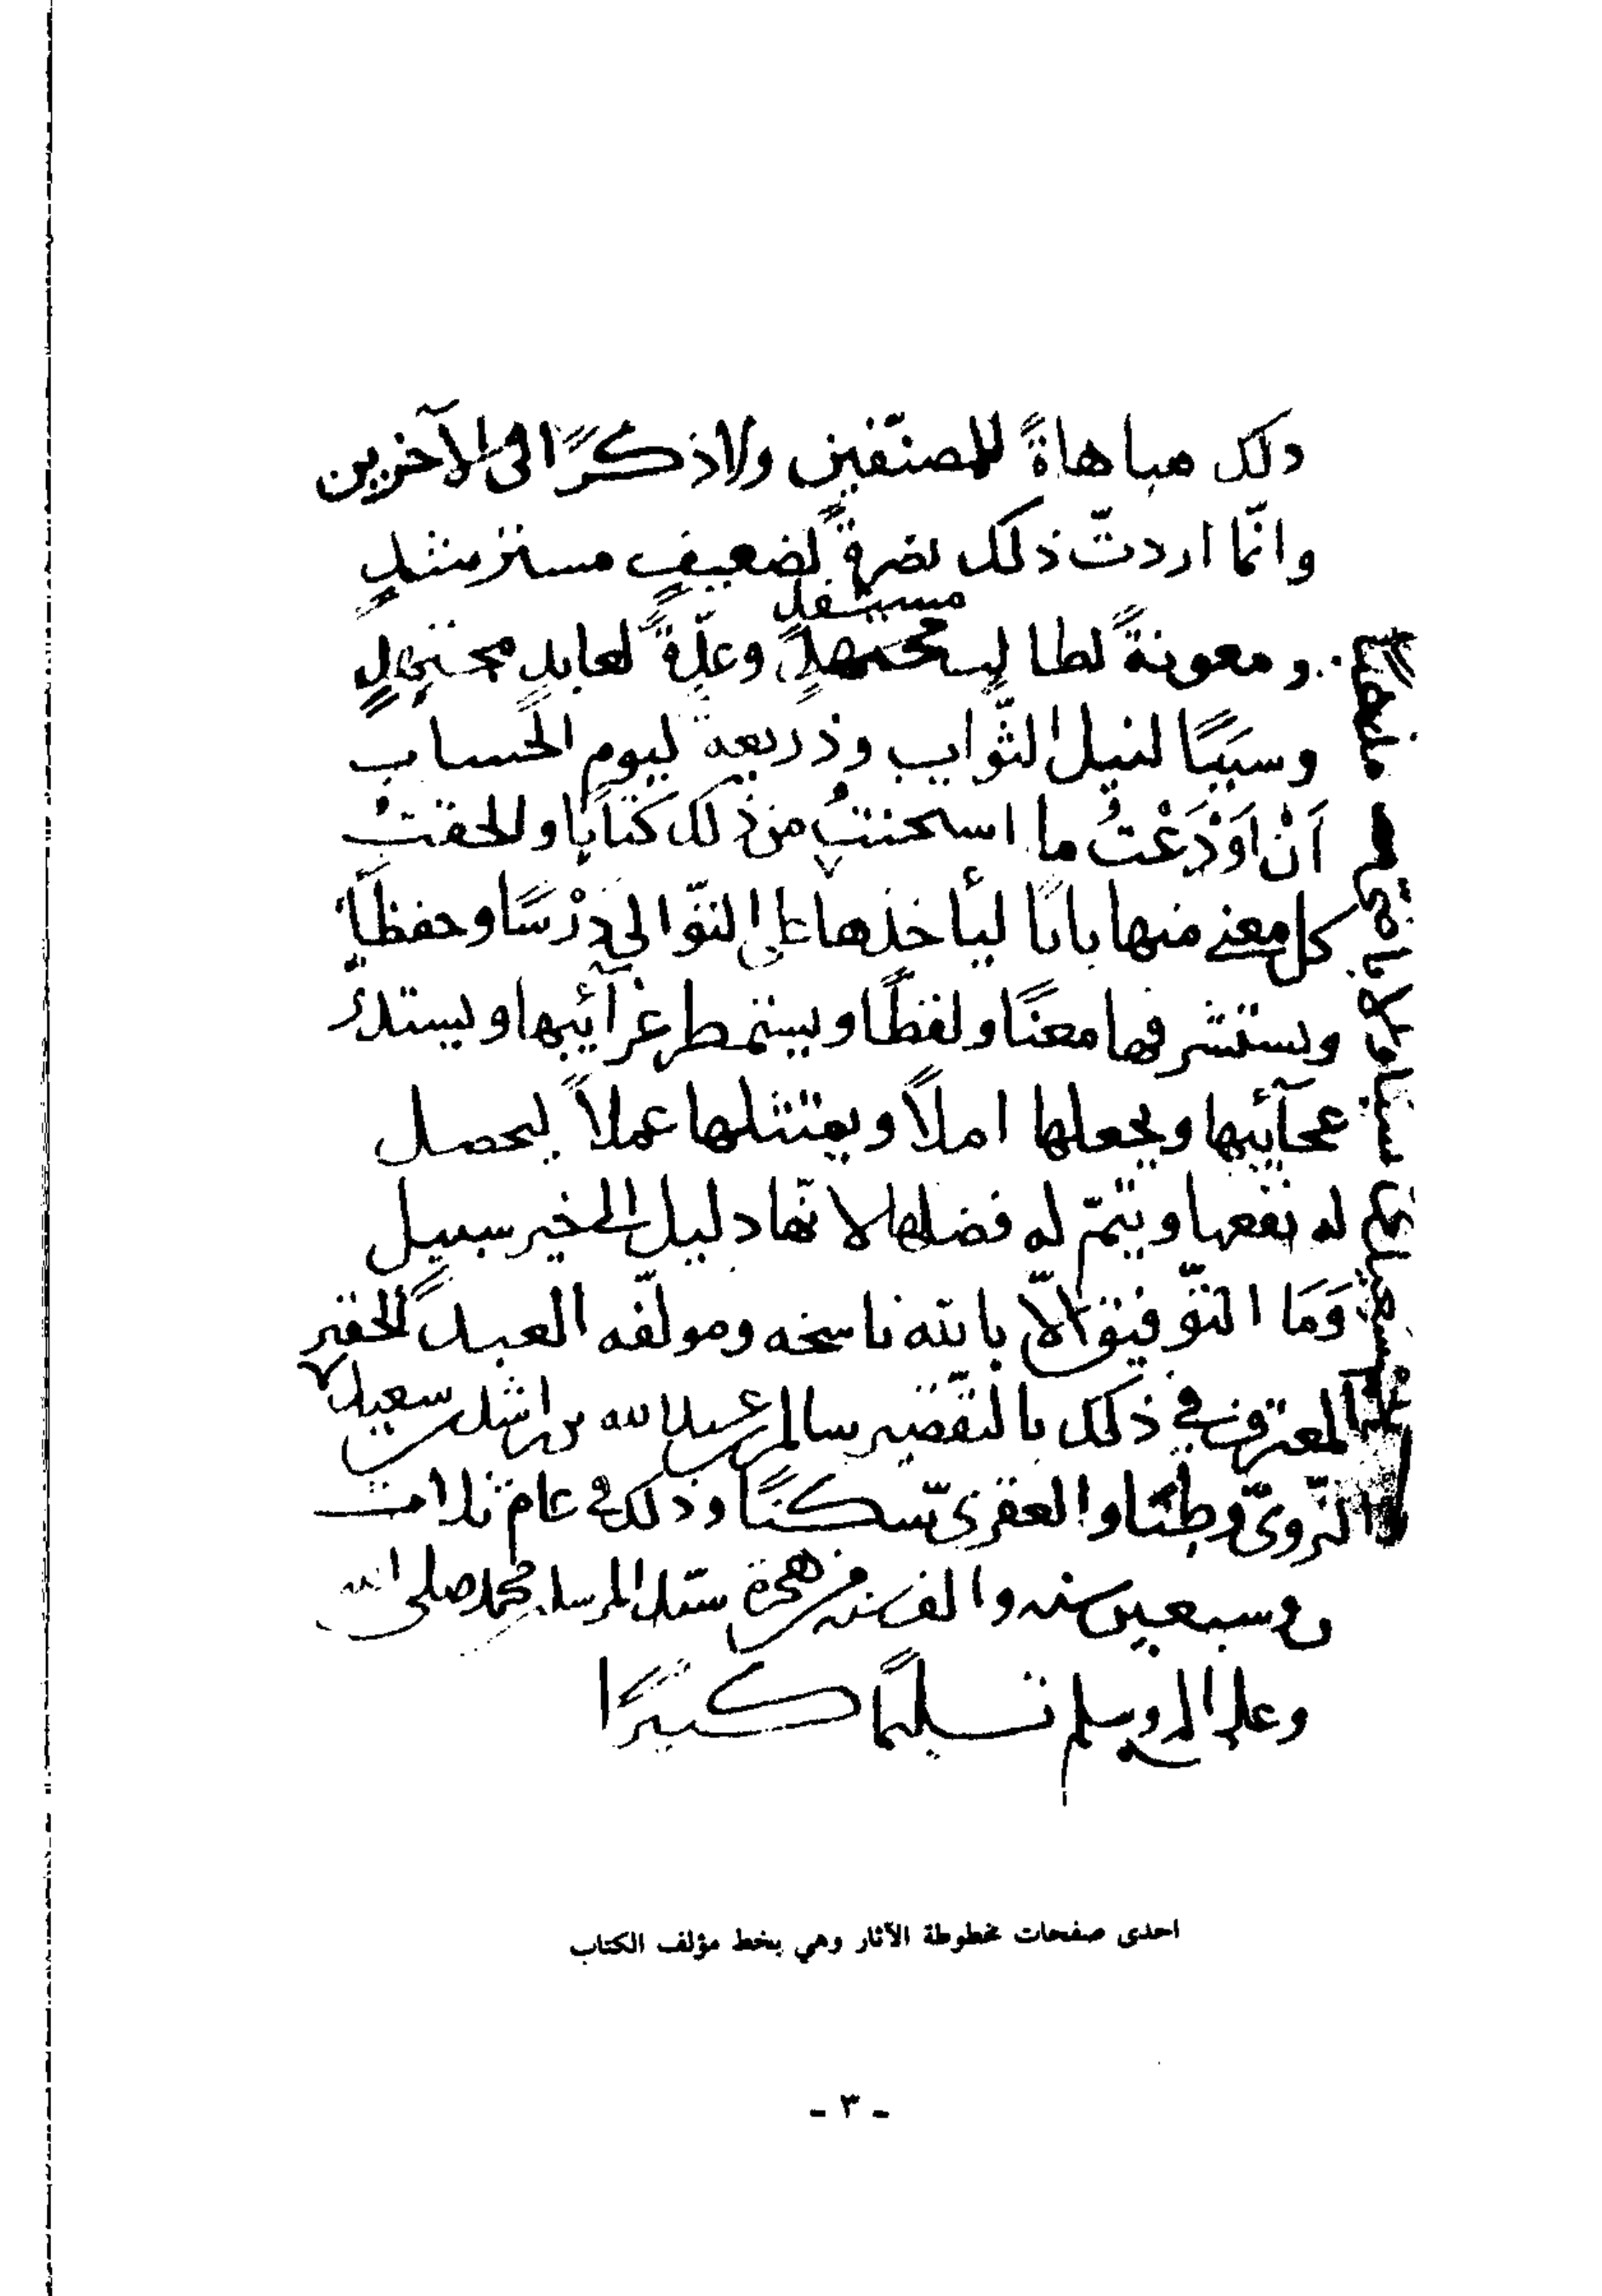 ذلك مباهاةً للمصنّفين ولا ذكرًا في الآخرين
وانّما اردتّ ذلك نصرةً لضعيفٍ مسترشدٍ
مستفدٍ
ومعونةً لطالبٍ مجتهدٍ وعدّةً لعابدٍ مجتهدٍ
وسببًا لنيل الثّواب وذريعة ليوم الحساب
اَنْ اَوْدَعْتُ ما استحسنتُ من ذلك كتابًا والحقتُ
كل معنى منها بابًا ليأخذها على التوّالي دِرْسًا وحفظًا
ويستشرفها معنًا ولفظًا ويستمطر غرآئبها ويستدرّ
عجآئبها ويجعلها املاً ويمتثلها عملاً ليحصل
له نفعها ويتمّ له فضلها لانّها دليل الخير سبيل
وَمَا التوّفيق الاّ بالله ناسخه ومولّفه العبد الحقير
المعترف في ذلك بالتقّصير سالم بن عبدالله بن راشد بن سعيد
النّزويّ وطنًا والعقريّ سكنًا وذلك في عام ثلاث
وسبعين سنه والف سنه من هجرة سيّد المرسلين محمد صلى الله
وعلى اله وسلم تسليمًا كبيرًا
احدى صفحات مخطوطة الآثار وهي بخط مؤلف الكتاب
- ٣ -